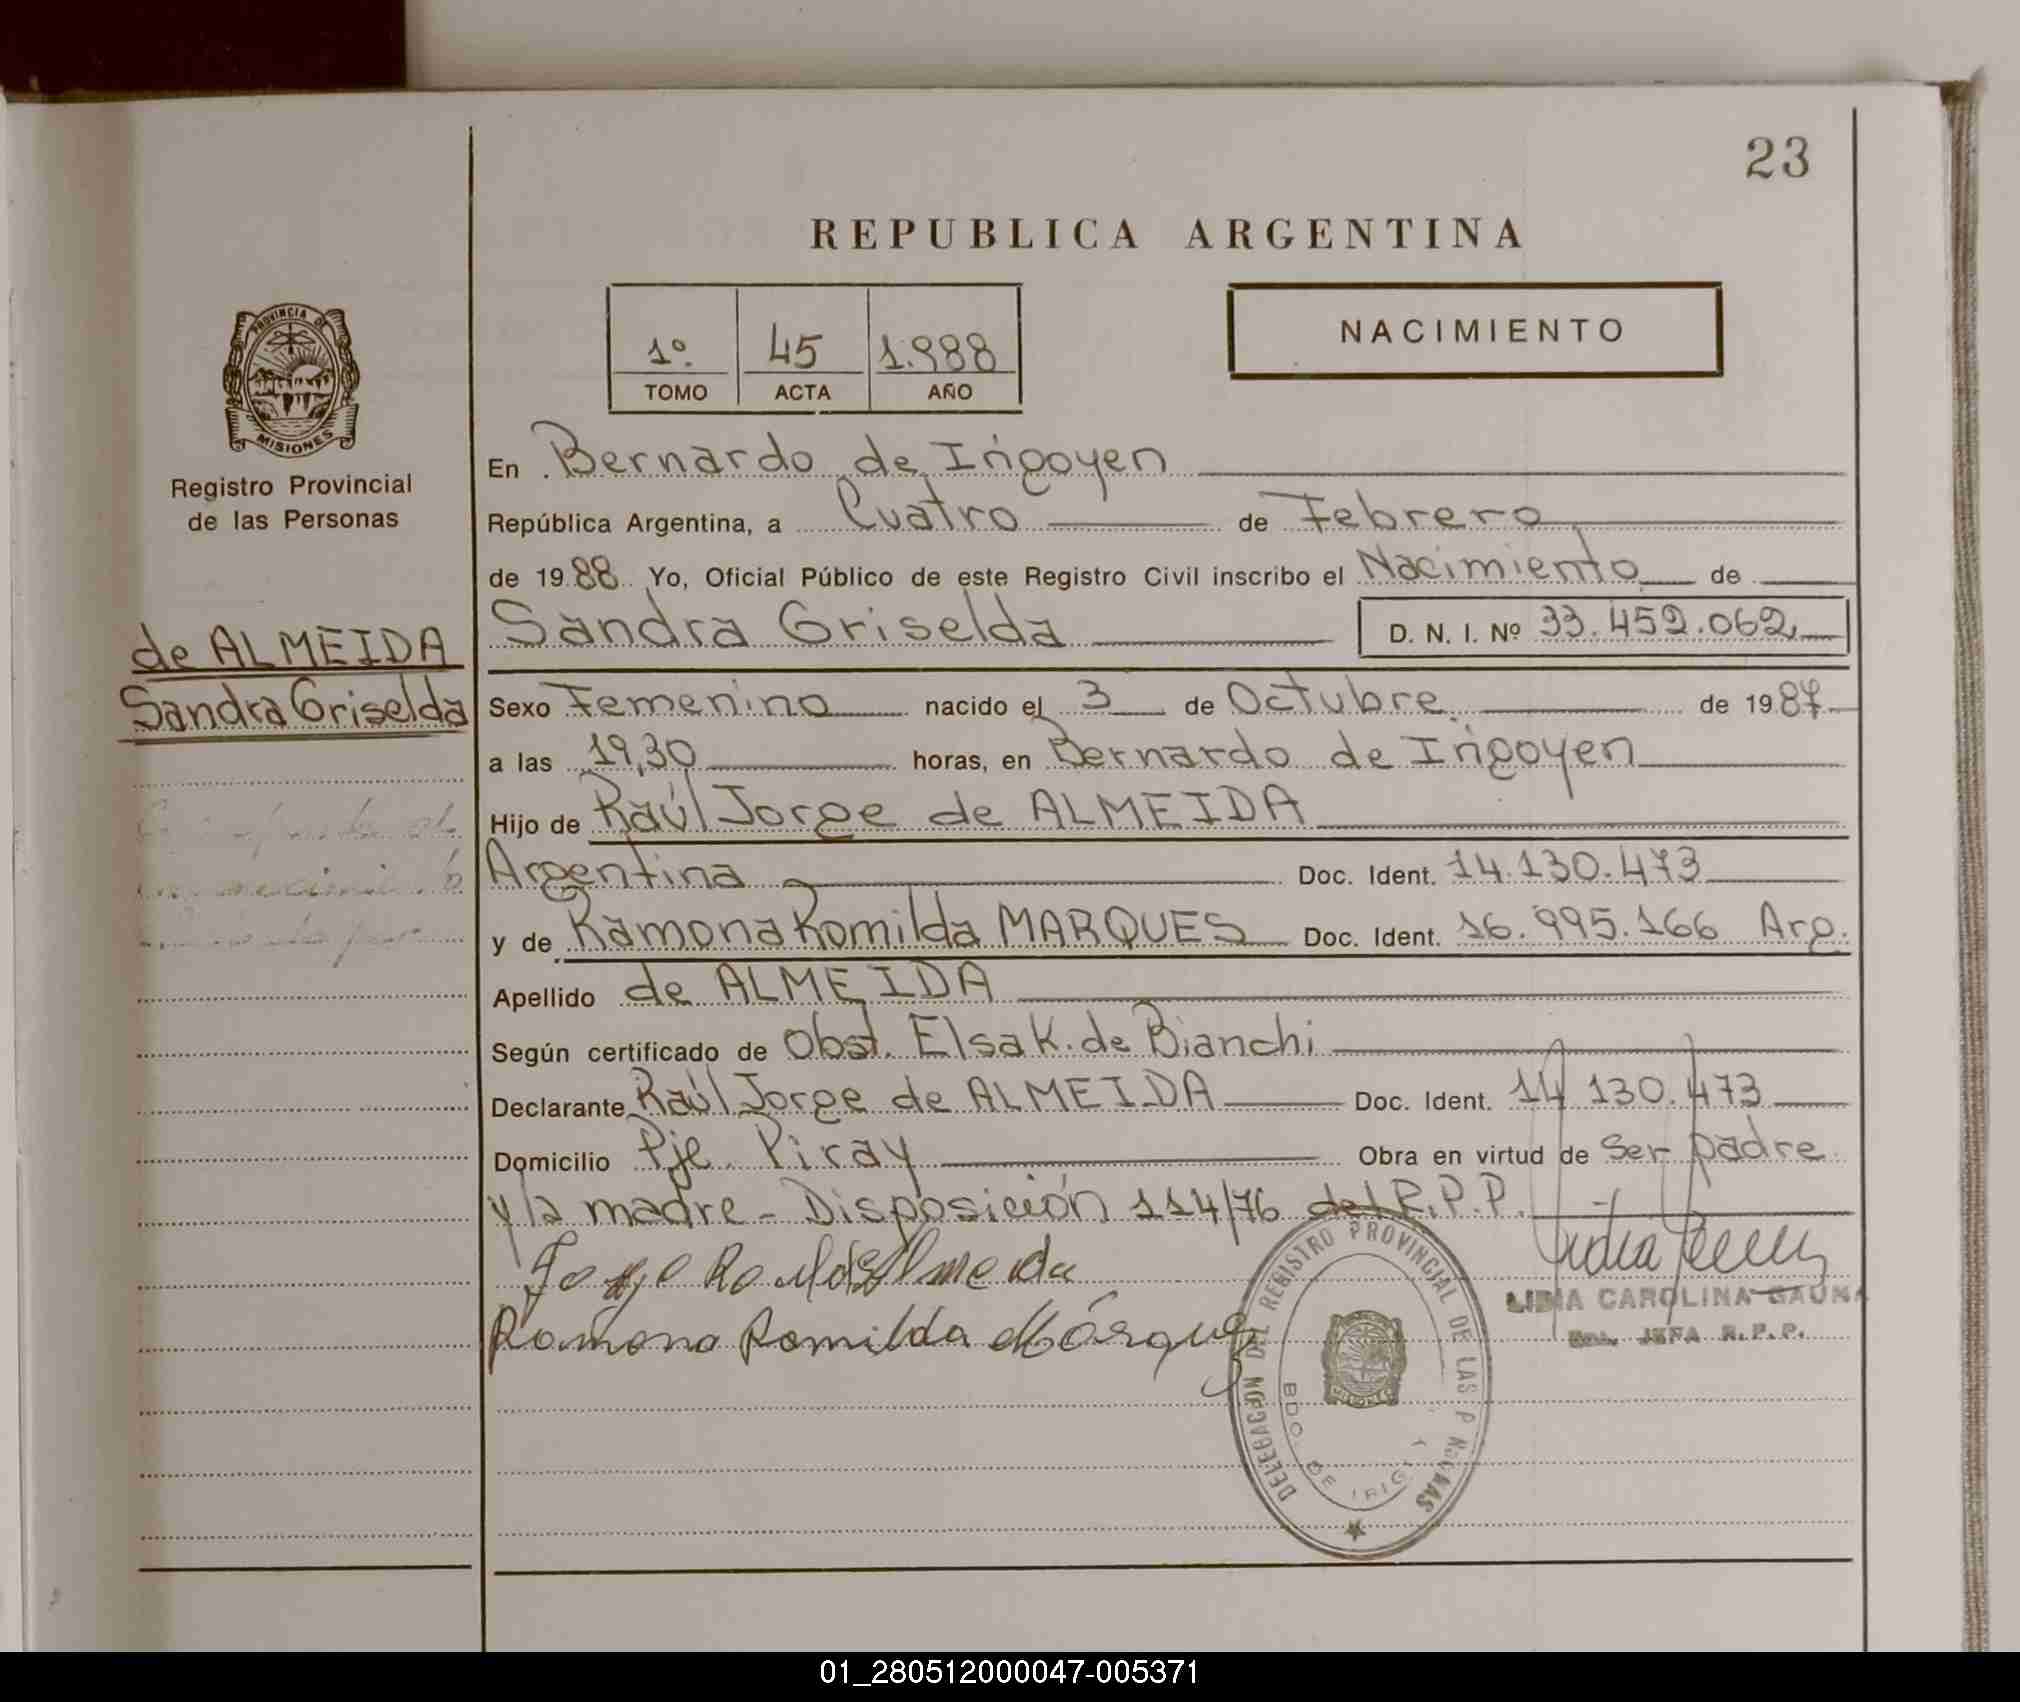 23
REPUBLICA ARGENTINA
1º. 45 1.988
TOMO ACTA AÑO
NACIMIENTO
PROVINCIA DE
MISIONES
Registro Provincial
de las Personas
de ALMEIDA
Sandra Griselda
En Bernardo de Irigoyen
República Argentina, a Cuatro de Febrero
de 1988 Yo, Oficial Público de este Registro Civil inscribo el Nacimiento de
Sandra Griselda D. N. I. Nº 33.452.062
Sexo Femenino nacido el 3 de Octubre de 1987
a las 19,30 horas, en Bernardo de Irigoyen
Hijo de Raúl Jorge de ALMEIDA
Argentina Doc. Ident. 14.130.473
y de Ramona Romilda MARQUES Doc. Ident. 16.995.166 Arg.
Apellido de ALMEIDA
Según certificado de Obst. Elsa K. de Bianchi
Declarante Raúl Jorge de ALMEIDA Doc. Ident. 14.130.473
Domicilio Pje. Piray Obra en virtud de ser padre
y la madre - Disposición 114/76 del R.P.P.
Ramona Romilda Márquez
DELEGACION DEL REGISTRO PROVINCIAL DE LAS P
BDO. DE IRIG
LIDIA CAROLINA GAUNA
JEFA R.P.P.
01_280512000047-005371